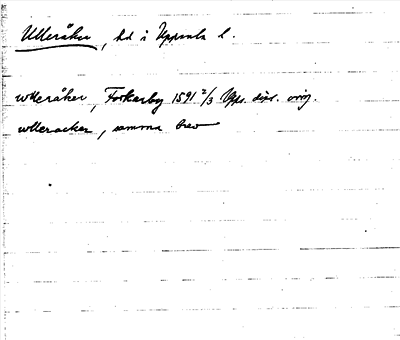 Ulleråker, hd i Uppsala l.
wlleråker, Forkarby 1591 2/3 Upps. dipl. orig.
wlleracker, samma brev